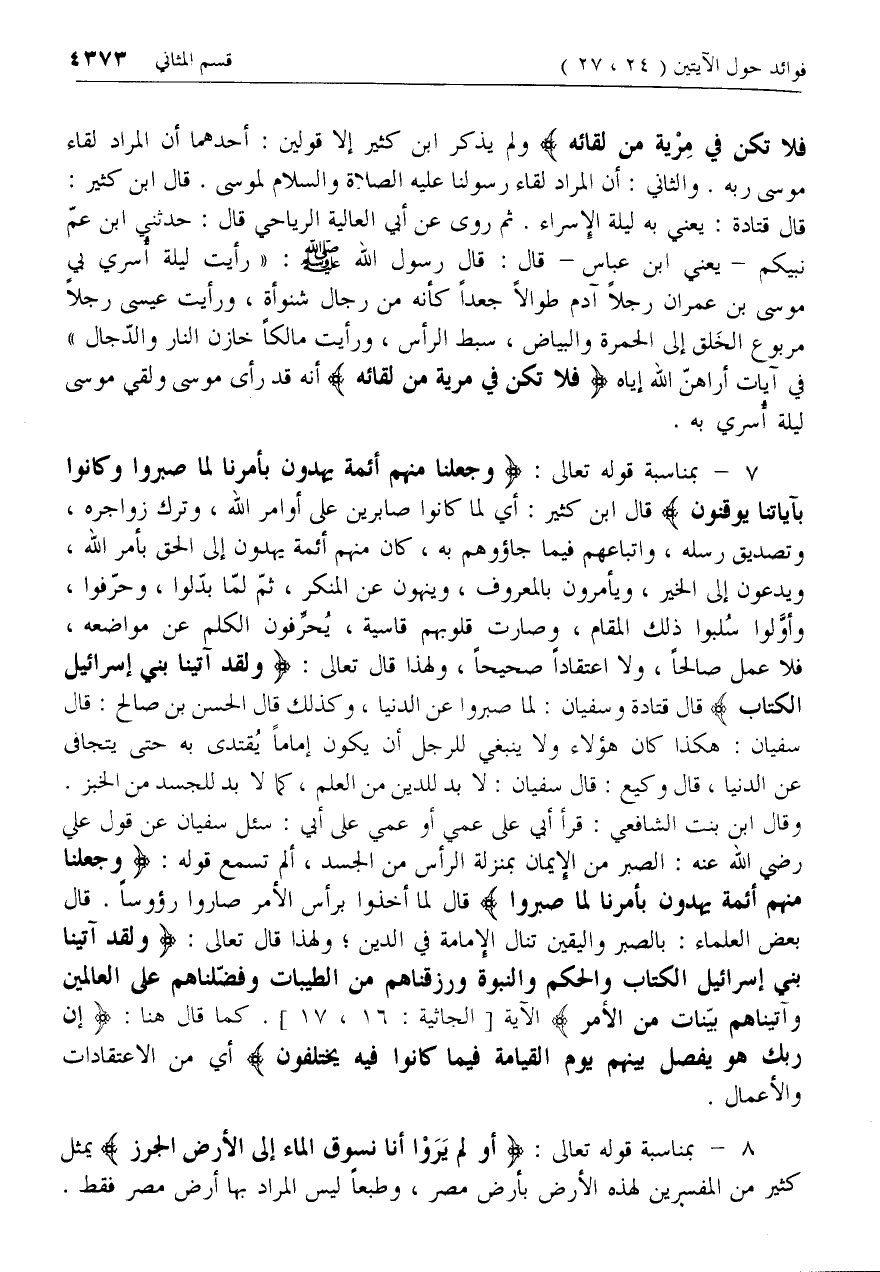 فوائد حول الآيتين ( ٢٤ ، ٢٧ ) قسم المثاني ٤٣٧٣
فلا تكن في مِرْية من لقائه ﴾ ولم يذكر ابن كثير إلا قولين : أحدهما أن المراد لقاء
موسى ربه . والثاني : أن المراد لقاء رسولنا عليه الصلاة والسلام لموسى . قال ابن كثير :
قال قتادة : يعني به ليلة الإسراء . ثم روى عن أبي العالية الرياحي قال : حدثني ابن عمّ
نبيكم – يعني ابن عباس – قال : قال رسول الله ﷺ : « رأيت ليلة أُسري بي
موسى بن عمران رجلاً آدم طوالاً جعداً كأنه من رجال شنوأة ، ورأيت عيسى رجلاً
مربوع الخَلق إلى الحمرة والبياض ، سبط الرأس ، ورأيت مالكاً خازن النار والدّجال »
في آيات أراهنّ الله إياه ﴿ فلا تكن في مرية من لقائه ﴾ أنه قد رأى موسى ولقي موسى
ليلة أُسري به .
٧ – بمناسبة قوله تعالى : ﴿ وجعلنا منهم أئمة يهدون بأمرنا لما صبروا وكانوا
بآياتنا يوقنون ﴾ قال ابن كثير : أي لما كانوا صابرين على أوامر الله ، وترك زواجره ،
وتصديق رسله ، واتباعهم فيما جاؤوهم به ، كان منهم أئمة يهدون إلى الحق بأمر الله ،
ويدعون إلى الخير ، ويأمرون بالمعروف ، وينهون عن المنكر ، ثمّ لمّا بدّلوا ، وحرّفوا ،
وأوَّلوا سُلبوا ذلك المقام ، وصارت قلوبهم قاسية ، يُحرِّفون الكلم عن مواضعه ،
فلا عمل صالحاً ، ولا اعتقاداً صحيحاً ، ولهذا قال تعالى : ﴿ ولقد آتينا بني إسرائيل
الكتاب ﴾ قال قتادة وسفيان : لما صبروا عن الدنيا ، وكذلك قال الحسن بن صالح : قال
سفيان : هكذا كان هؤلاء ولا ينبغي للرجل أن يكون إماماً يُقتدى به حتى يتجافى
عن الدنيا ، قال وكيع : قال سفيان : لا بد للدين من العلم ، كما لا بد للجسد من الخبز .
وقال ابن بنت الشافعي : قرأ أبي على عمي أو عمي على أبي : سئل سفيان عن قول علي
رضي الله عنه : الصبر من الإيمان بمنزلة الرأس من الجسد ، ألم تسمع قوله : ﴿ وجعلنا
منهم أئمة يهدون بأمرنا لما صبروا ﴾ قال لما أخذوا برأس الأمر صاروا رؤوساً . قال
بعض العلماء : بالصبر واليقين تنال الإمامة في الدين ؛ ولهذا قال تعالى : ﴿ ولقد آتينا
بني إسرائيل الكتاب والحكم والنبوة ورزقناهم من الطيبات وفضّلناهم على العالمين
وآتيناهم بيّنات من الأمر ﴾ الآية [ الجاثية : ١٦ ، ١٧ ] . كما قال هنا : ﴿ إن
ربك هو يفصل بينهم يوم القيامة فيما كانوا فيه يختلفون ﴾ أي من الاعتقادات
والأعمال .
٨ – بمناسبة قوله تعالى : ﴿ أو لم يَرَوْا أنا نسوق الماء إلى الأرض الجرز ﴾ يمثل
كثير من المفسرين لهذه الأرض بأرض مصر ، وطبعاً ليس المراد بها أرض مصر فقط .